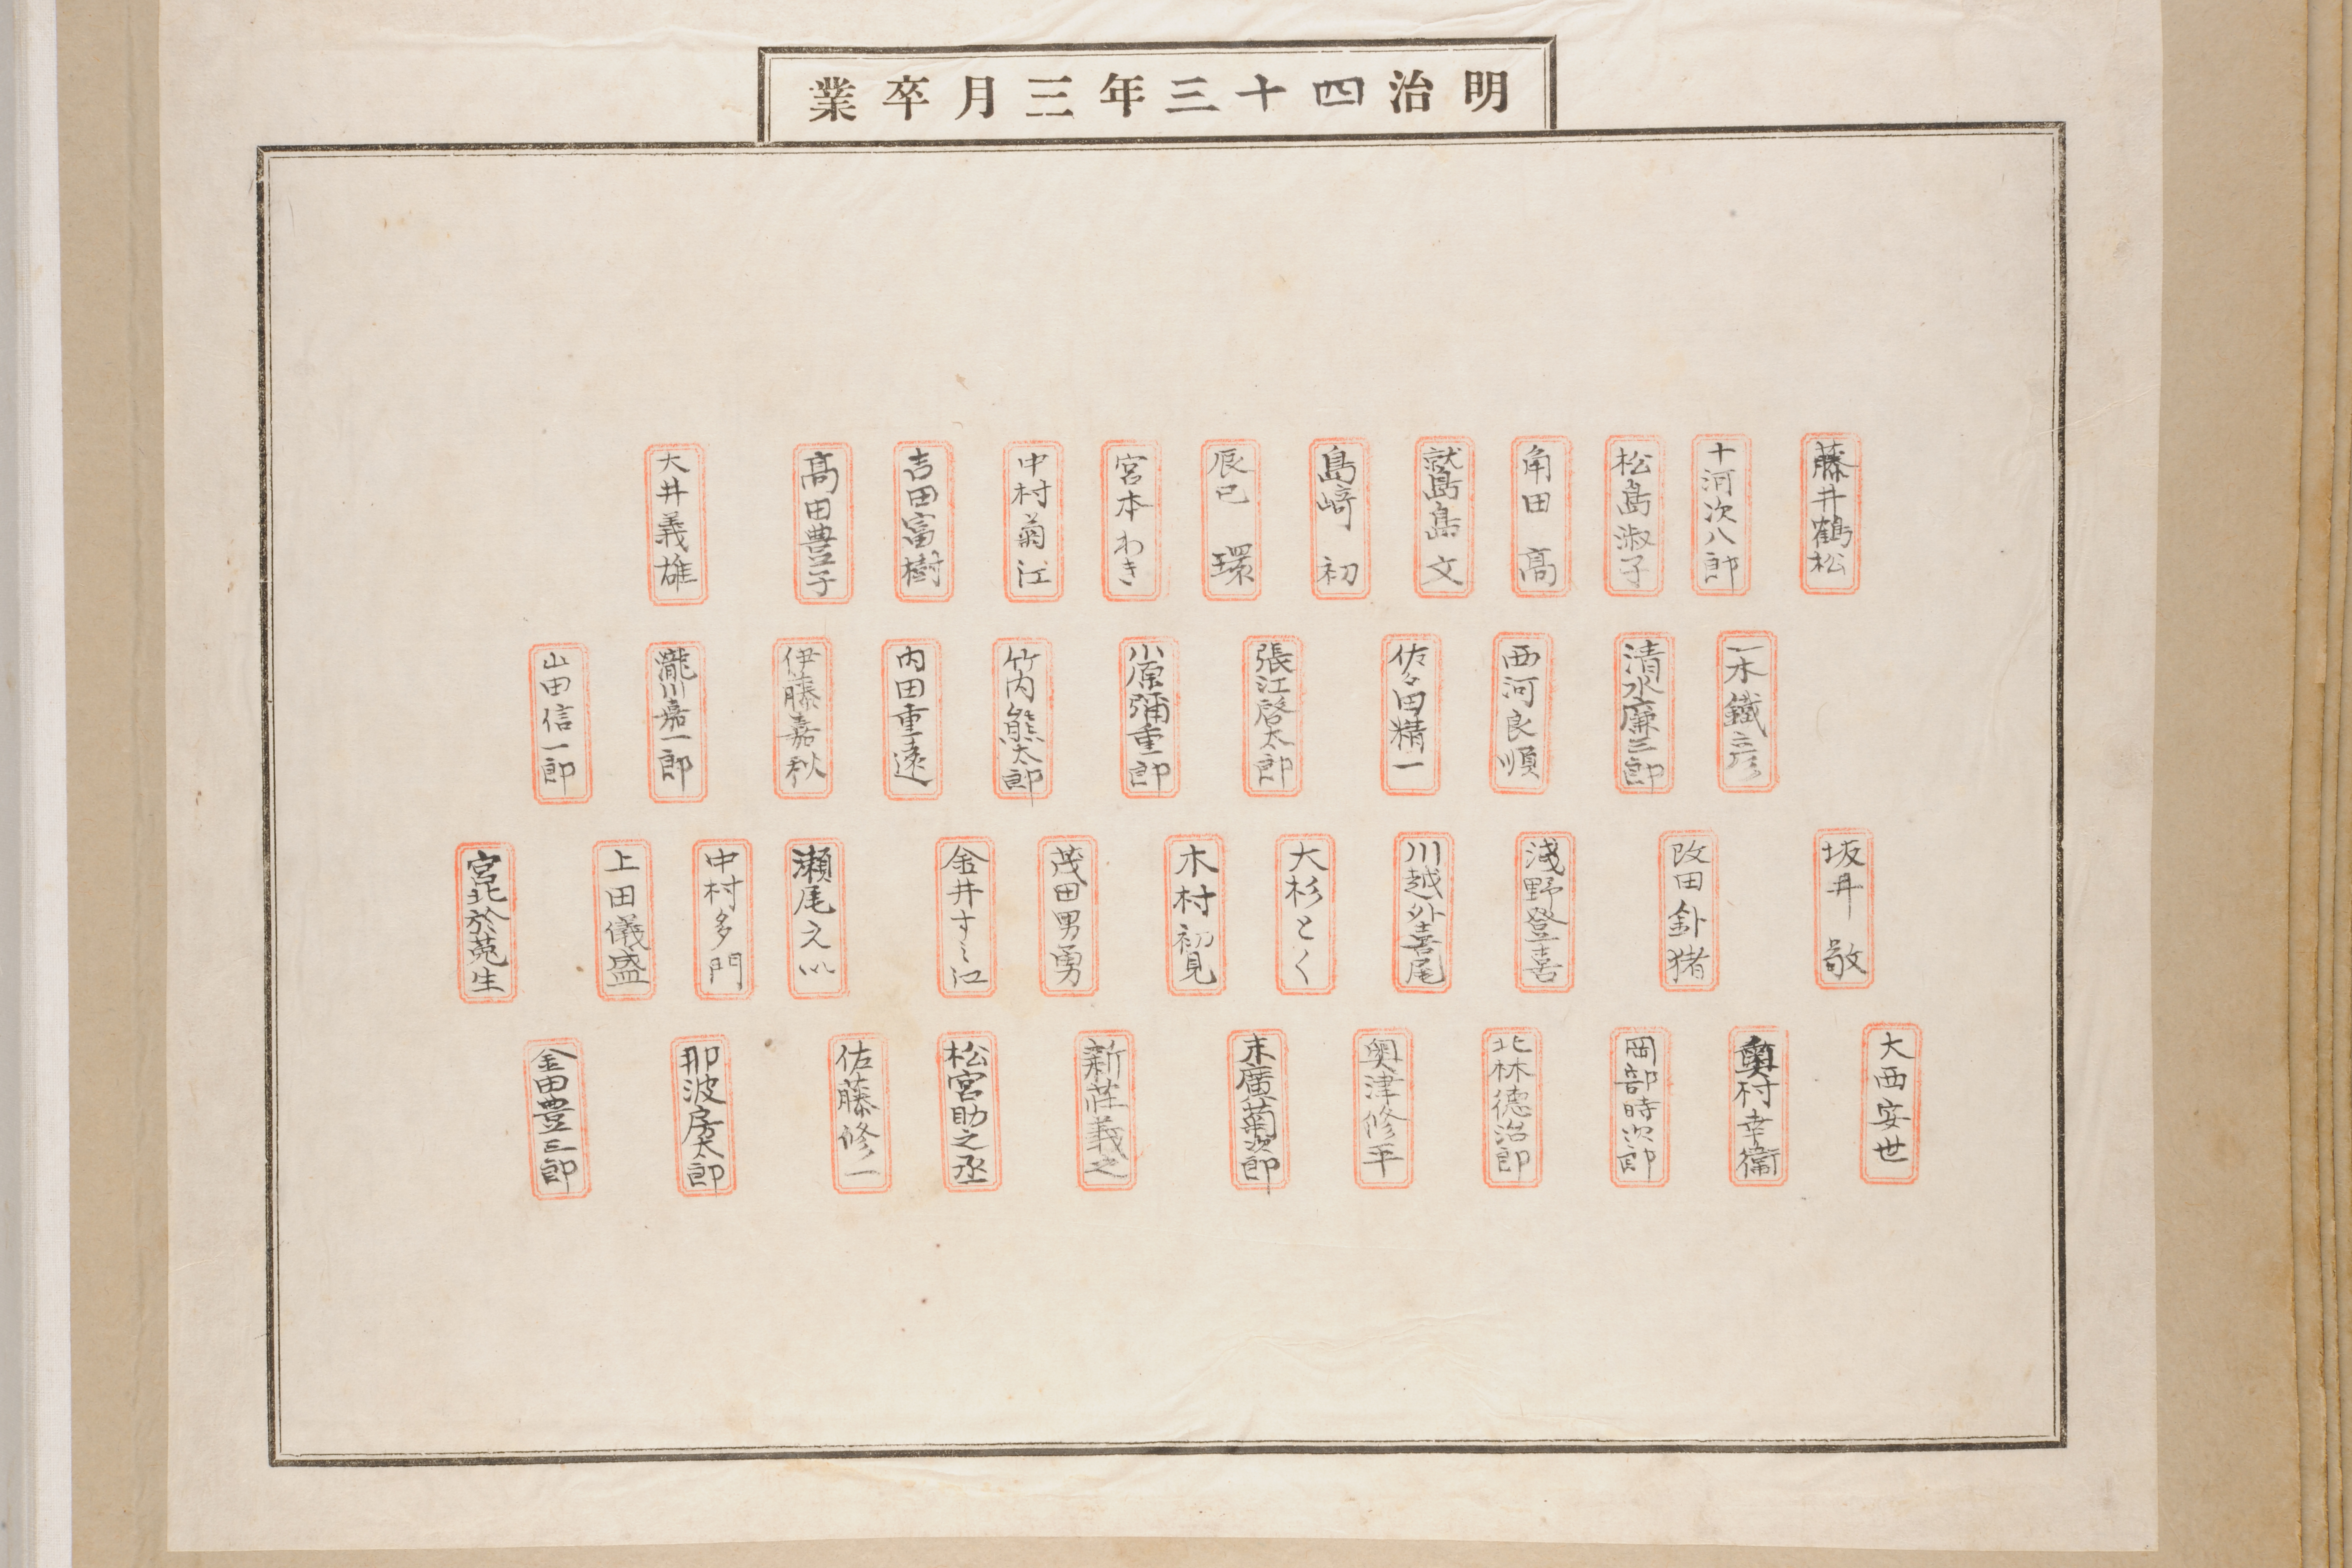 明治四十三年三月卒業
藤井鶴松
十河次八郎
松島淑子
角田高
鷲島文
島﨑初
辰已環
宮本わき
中村菊江
吉田富樹
髙田豊子
大井義雄
一木鐵彦
清水廉三郎
西河良順
佐々田精一
張江啓太郎
小原彌重郎
竹内熊太郎
内田重遠
伊藤嘉秋
瀧川嘉一郎
山田信一郎
坂井敬
改田釙猪
淺野登喜
川越外喜尾
大杉とく
木村初覓
茂田男勇
金井すミ江
瀬尾之以
中村多門
上田儀盛
宮北於菟生
大西安世
奥村幸衞
岡部時次郎
北林徳治郎
奥津修平
末廣菊次郎
新荘義之
松宮助之丞
佐藤修一
那波房太郎
金田豊三郎